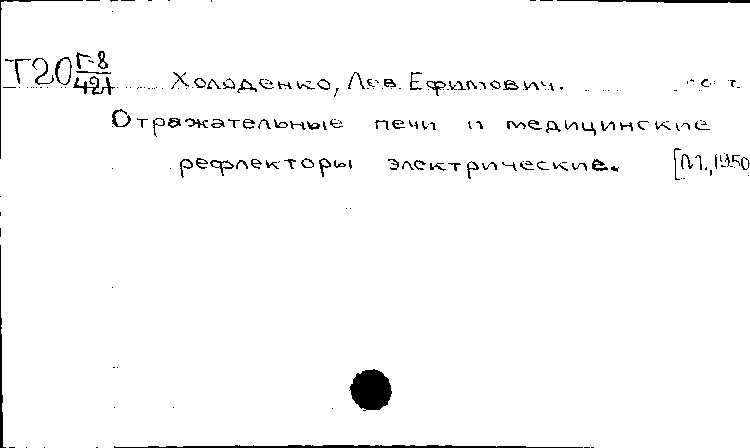 Т20 Г-8
421 Холоденко, Лев Ефимович.
Отражательные печи и медицинские
рефлекторы электрические. [М., 1950